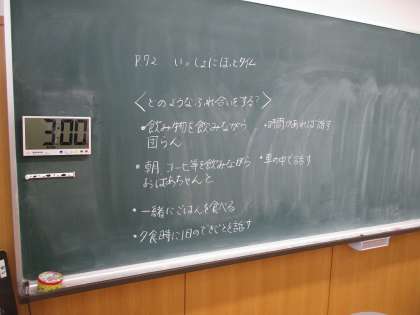 P.72 いっしょにほっとタイム
<どのようなふれ合いをする?>
・飲み物を飲みながら
団らん
・時間があれば話す
・朝 コーヒー等を飲みながら
おばあちゃんと
・車の中で話す
・一緒にごはんを食べる
・夕食時に1日のできごとを話す
3:00